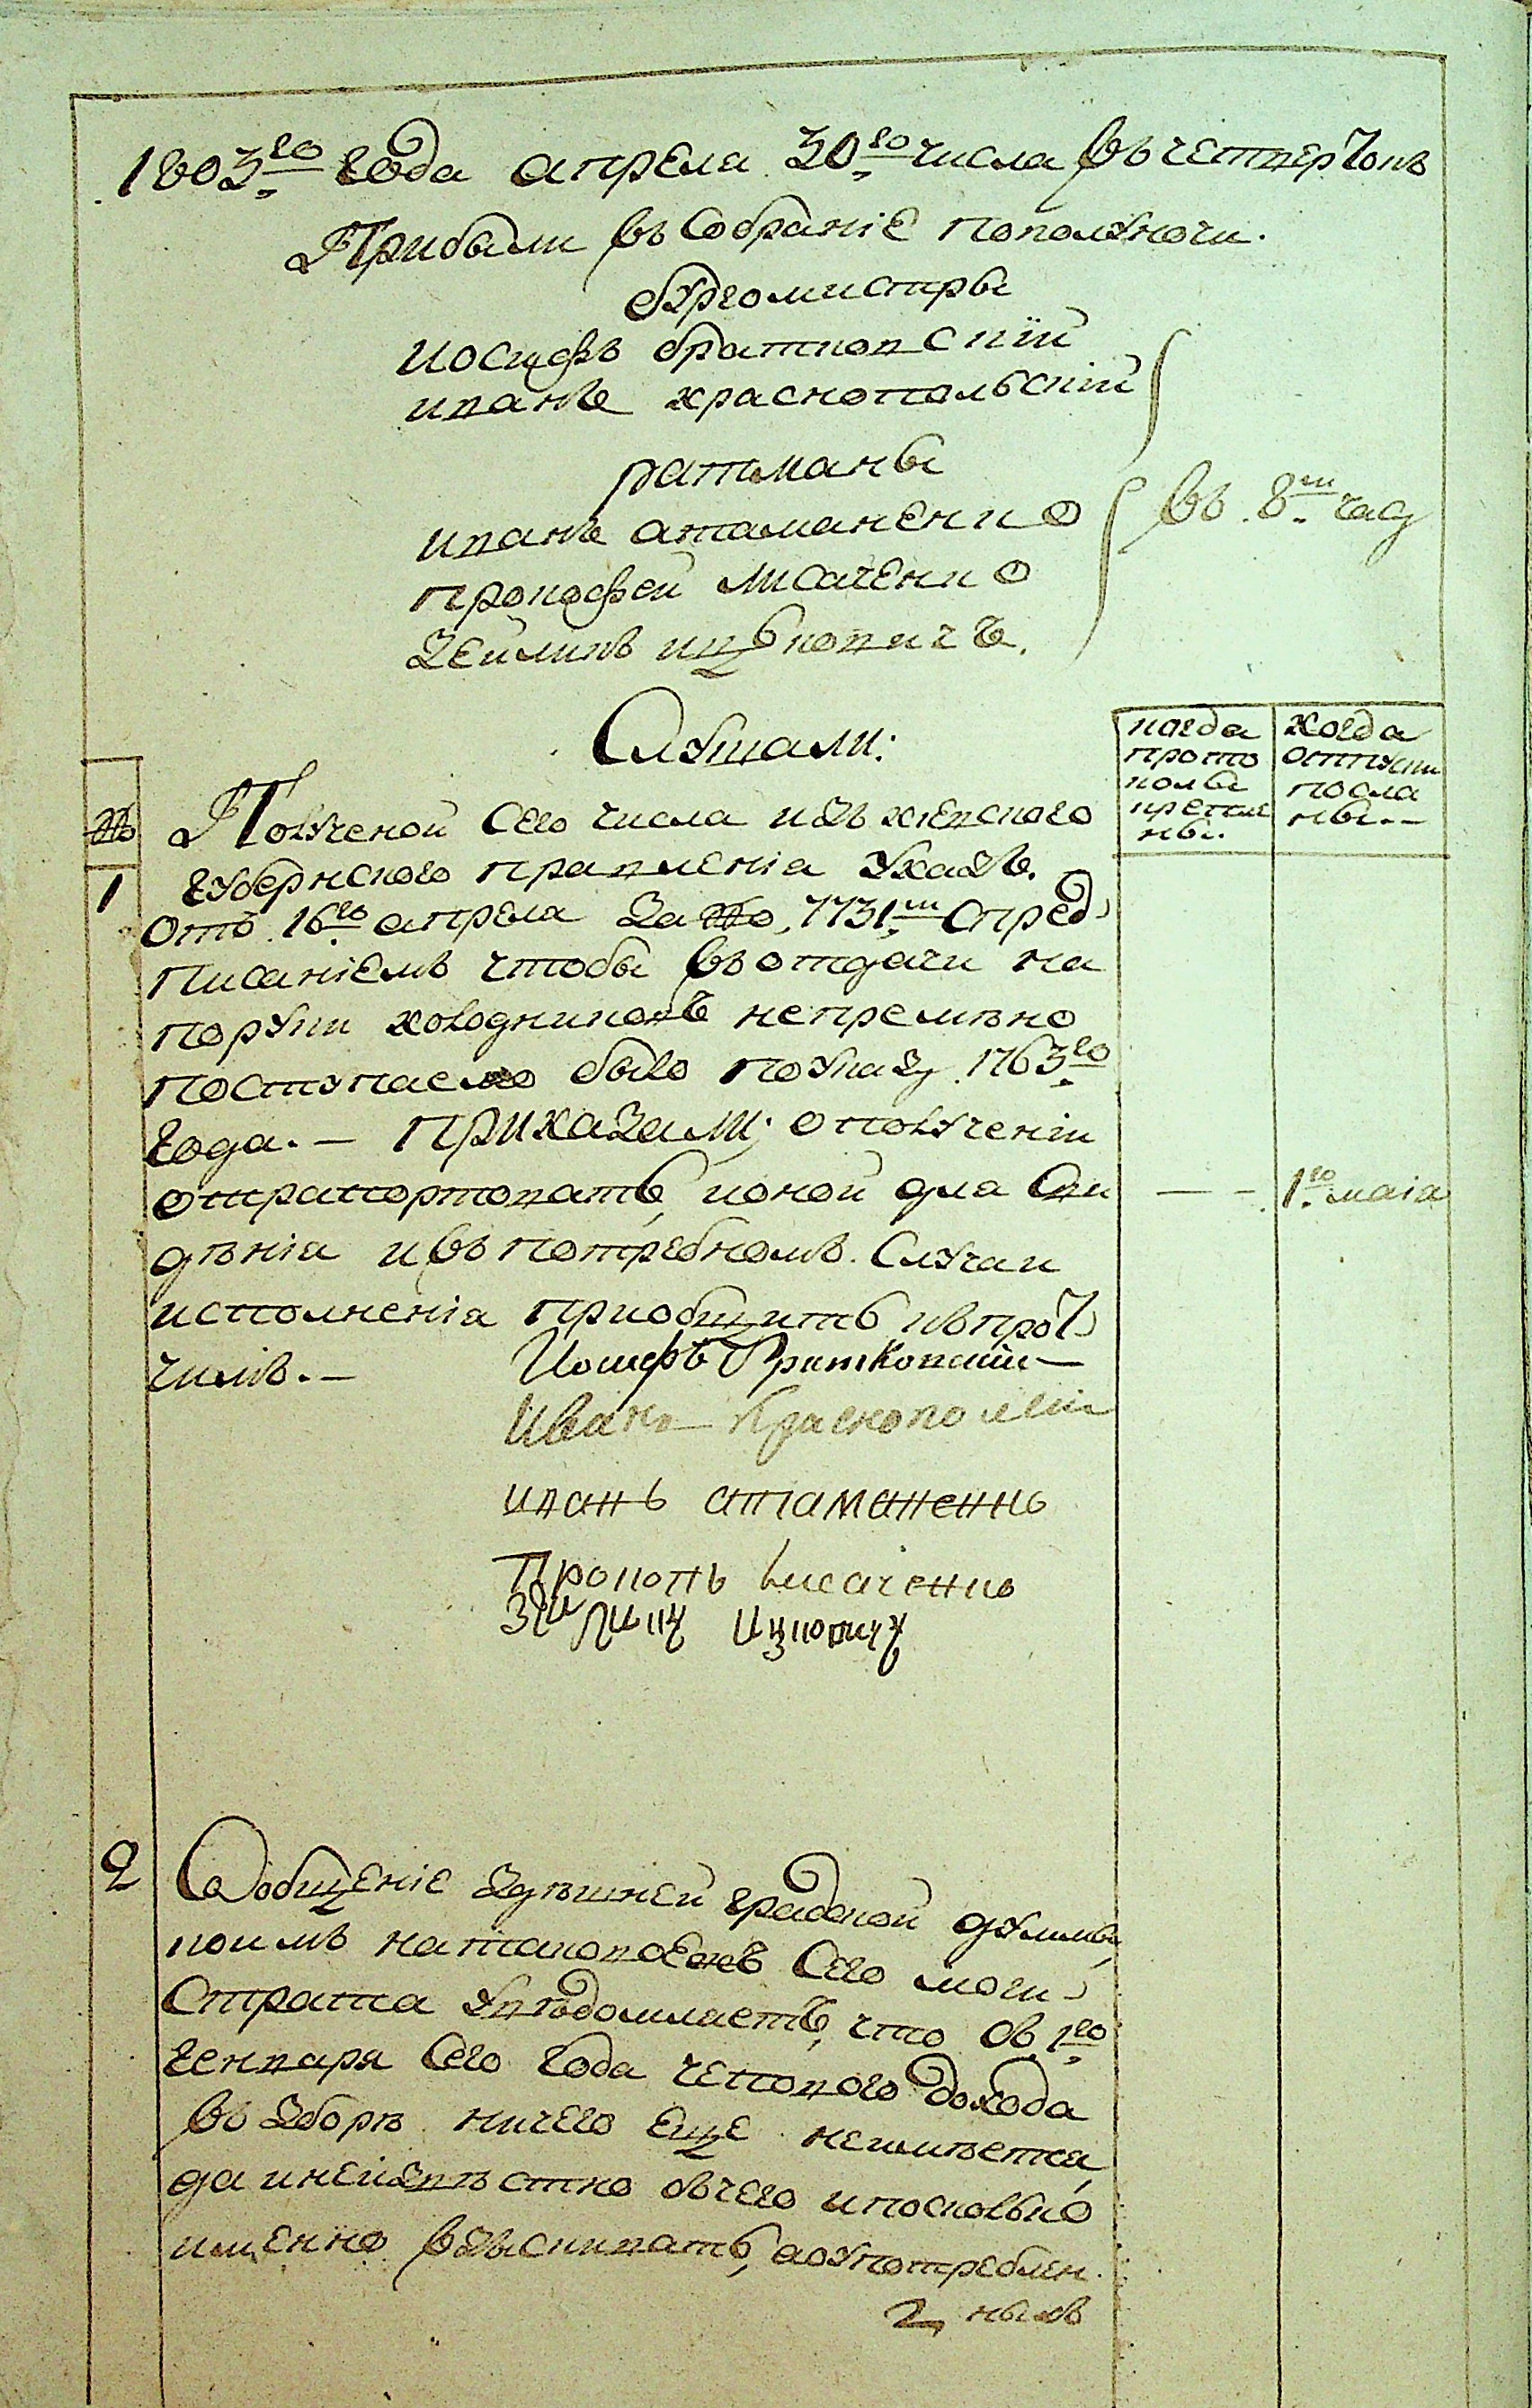 1803го года апреля 30го числа въ четвертокъ
Прибыли въ Собраніе пополуночи.
бургомистры
иосифъ братковскій
иванъ краснопольскій
ратманы
иванъ атаманенко
въ 8м часу
прокофей лисаченко
Зейликъ ицъковичъ.
Слушали:
когда прото колы крепле ны.
когда отпуски посла ны.
№
Полученой сего числа изъ киевского
1
губернского правленія указъ.
отъ 16го апреля за №о, 7731м Спред
писаніемъ чтобы въ отдачи на
поруки колодниковъ непремѣно
поступаемо было поуказу 1763го
года. — приказали; ополученіи
отрапортовать, ионой для Сви
— — 1го маія
дѣнія ивъ потребномъ Случаи
исполненія приобщить къ прот
чимъ. —
Иосифъ Братковскій
Иванъ Краснополскій
иванъ атаманенко
Прокопъ лисаченко
Зейликъ Ицковичъ
2
Сообщеніе здѣшней градской думы,
коимъ натаковоежъ Сего маги
страта уведомляетъ, что съ 1го
генваря Сего года четового дохода
въ зборѣ ничего еще неимѣетса,
да инеизвѣстно съчего ипосколько
именно взыскивать, аоупотреблен
ныхъ